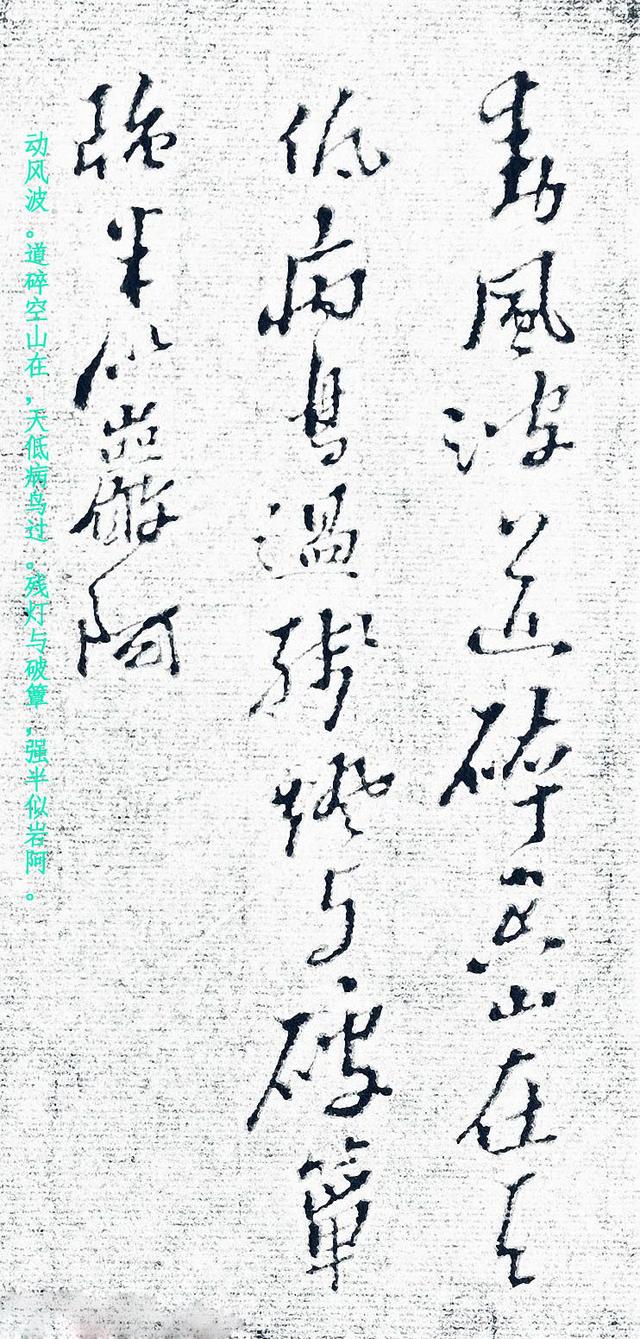 動風波道碎空山在天
低病鳥過殘燈与破簟
強半似巖阿
动风波。道碎空山在，天低病鸟过。残灯与破簟，强半似岩阿。